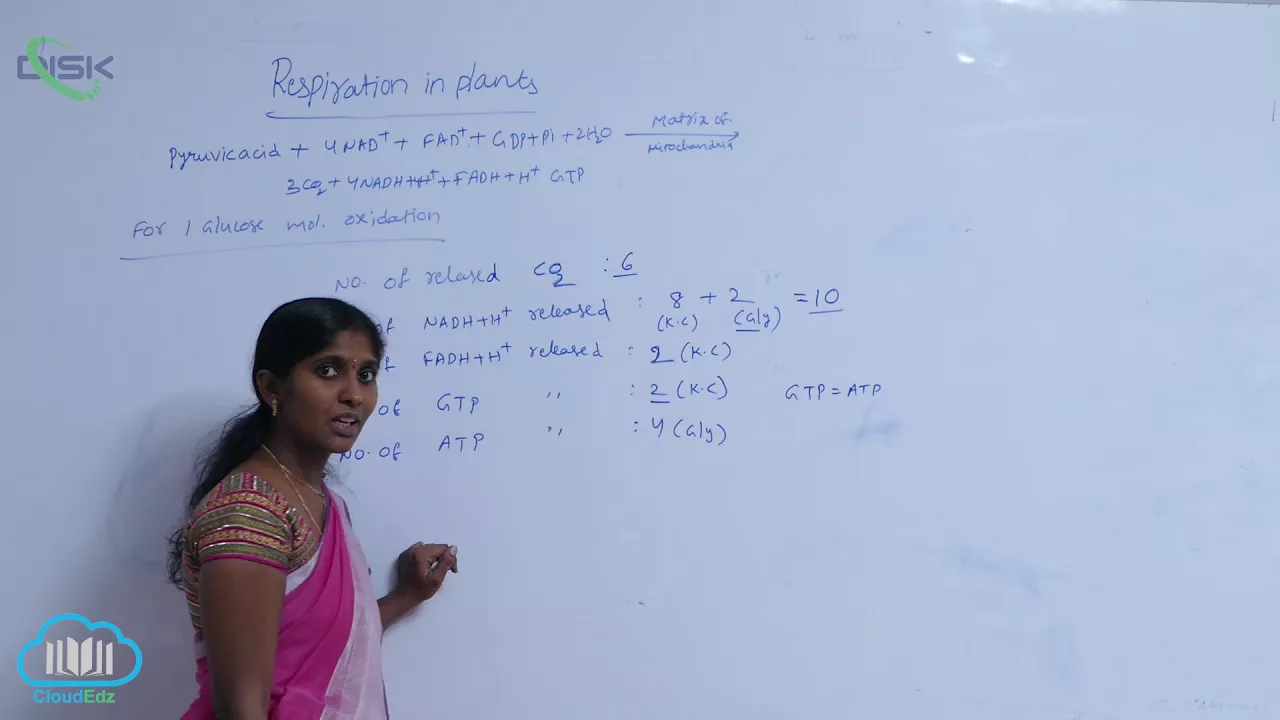 DISK
Respiration in plants
Pyruvicacid + 4NAD⁺ + FAD⁺ + GDP+Pi +2H₂O Matrix of
3CO₂ + 4NADH+H⁺ + FADH+H⁺ GTP
For 1 Glucose mol. oxidation
NO. of relased CO₂ : 6
of NADH+H⁺ released : 8 + 2 = 10
(K.C) (Gly)
FADH+H⁺ released : 2 (K.C)
of GTP ,, : 2 (K.C) GTP = ATP
NO. of ATP ,, : 4 (Gly)
CloudEdz